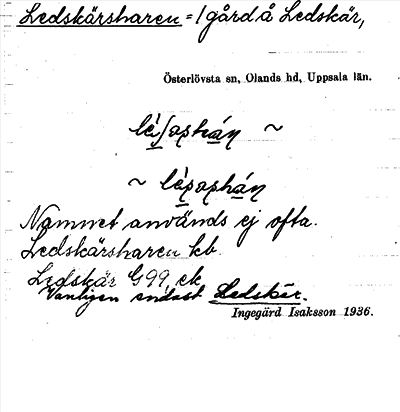 Ledskärsharen = 1 gård å Ledskär,
Österlövsta sn, Olands hd, Uppsala län.
~
~
Namnet används ej ofta.
Ledskärsharen kb.
Ledskär G 99, ek
Vanligen endast Ledskär.
Ingegärd Isaksson 1936.